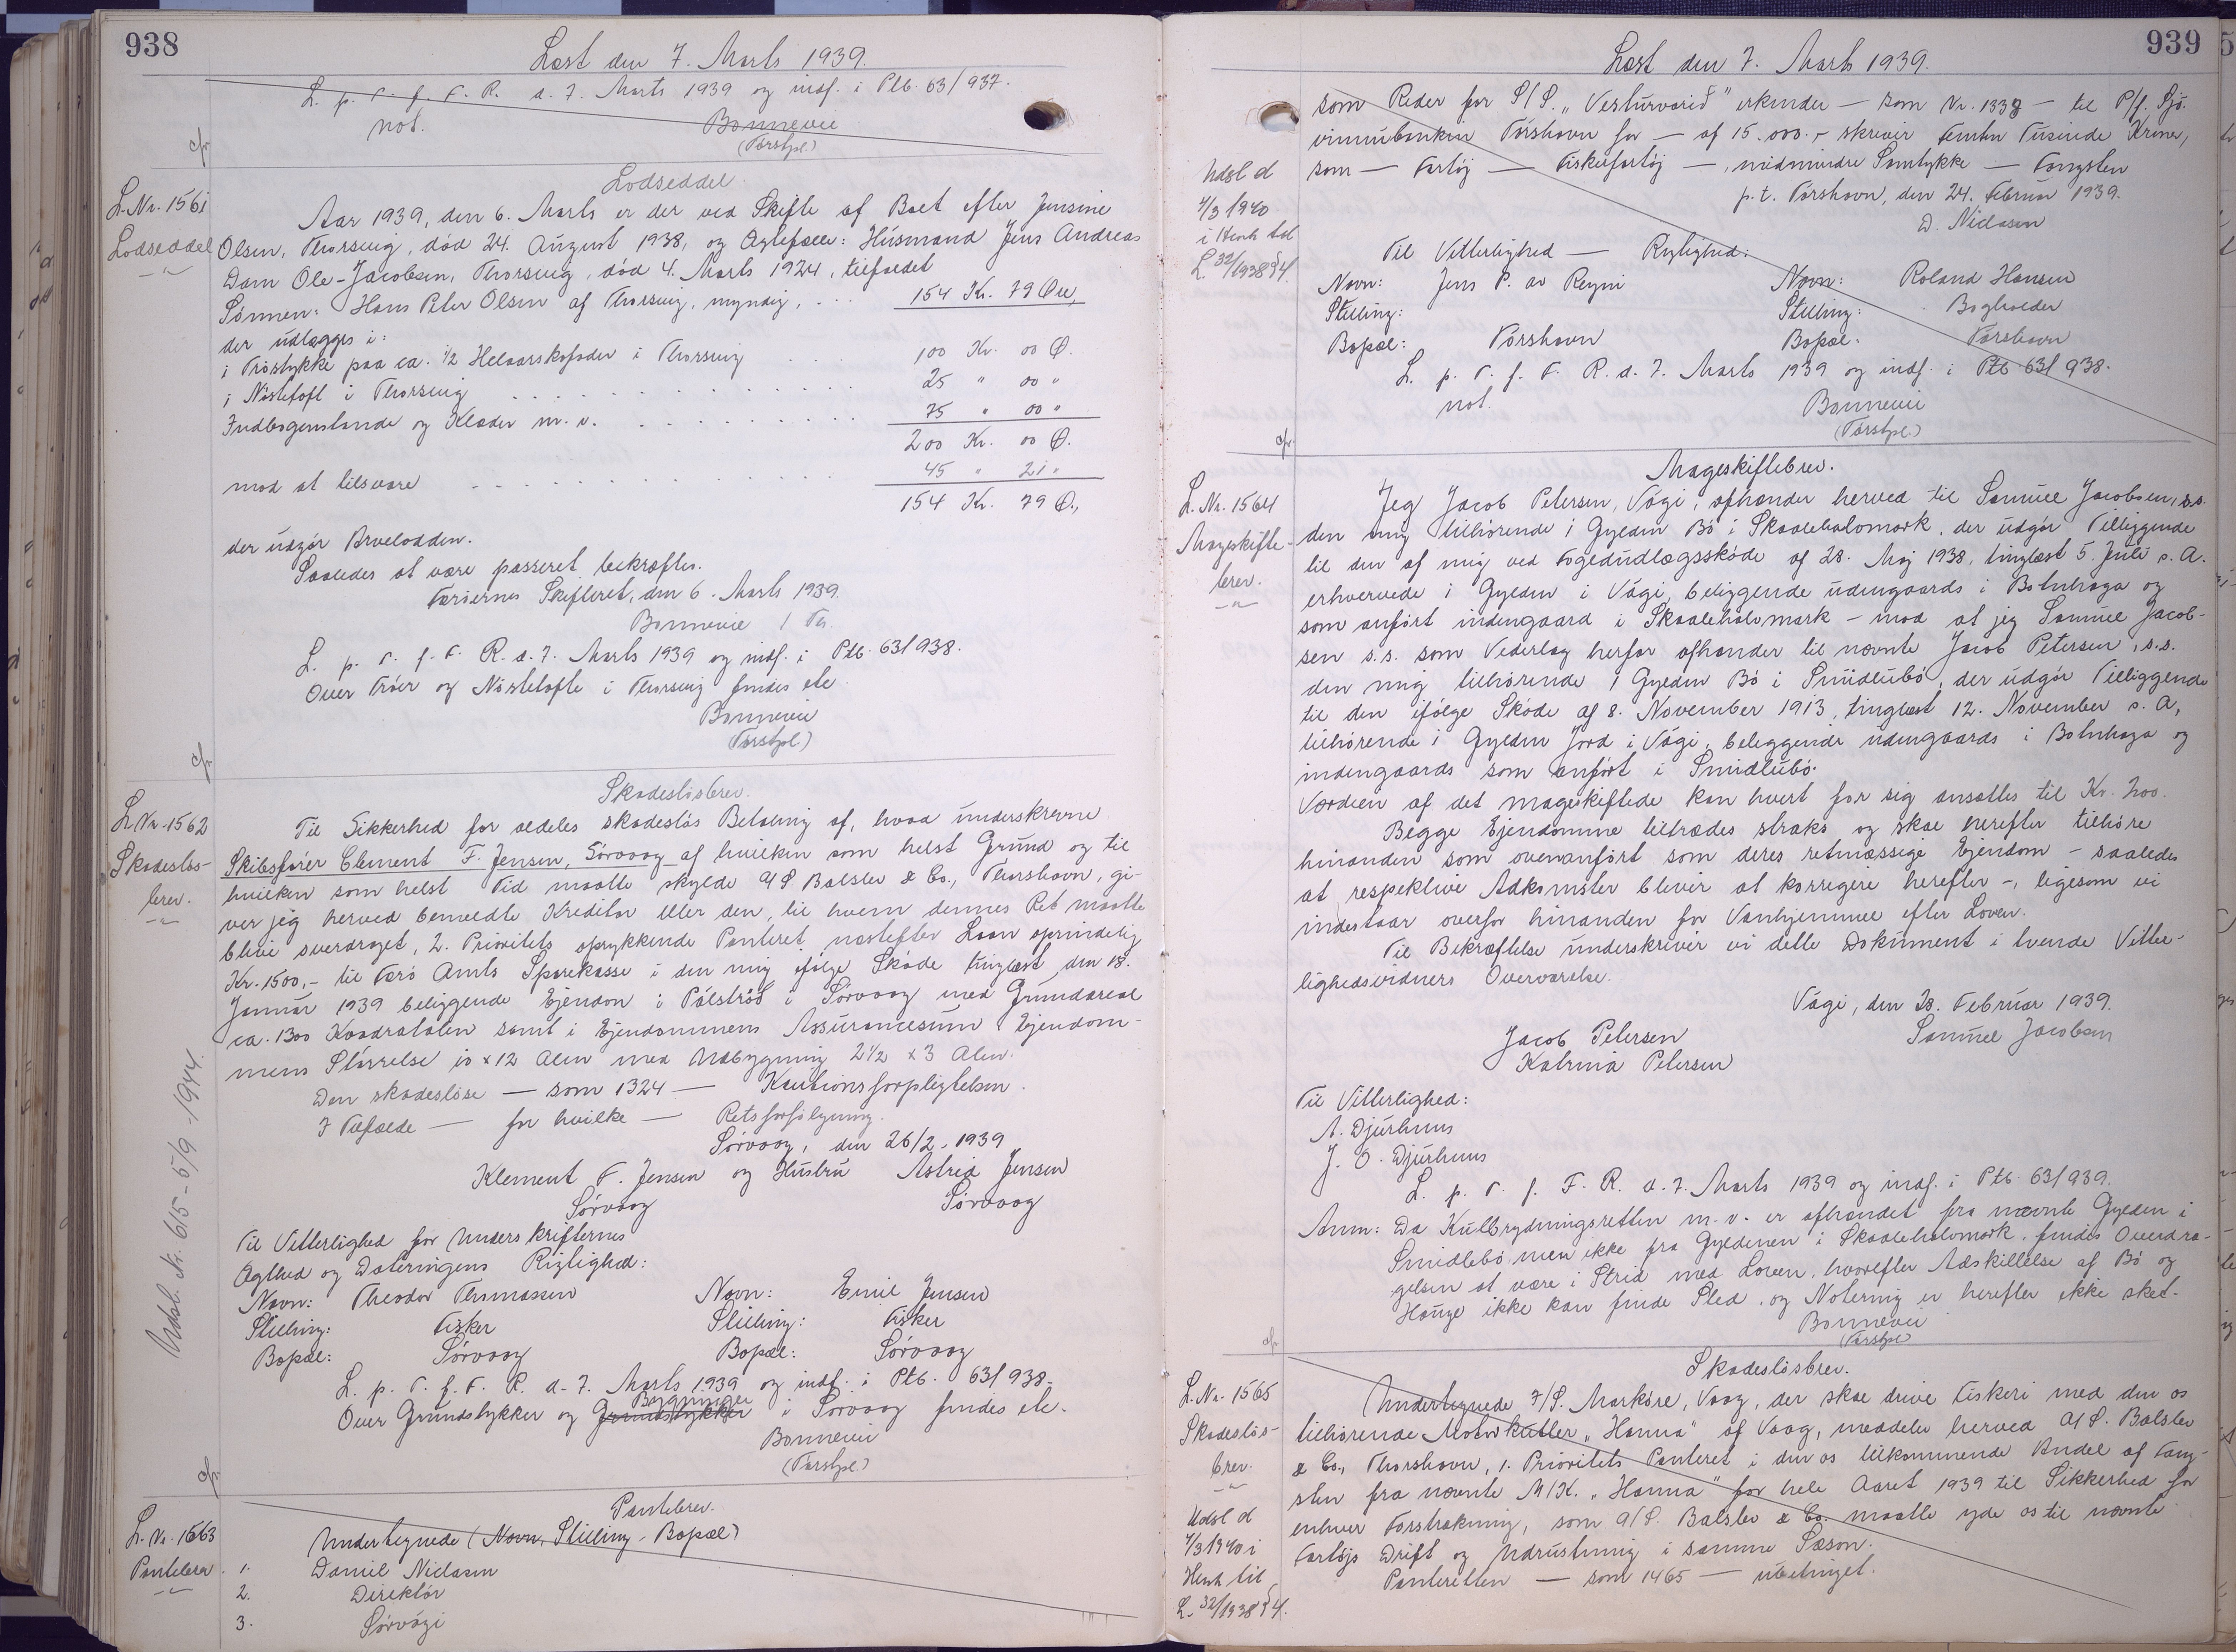 938
Læst den 7. Marts 1939.
L. p. T. f. F. R. d. 7. Marts 1939 og indf. i Ptb. 63/937.
not.
Bonnevie
(Torstpl.)
cfr
Lodseddel.
L. Nr. 1561
Lodseddel
Aar 1939, den 6. Marts er der ved Skifte af Boet efter Jensine
Olsen, Thorsvig, død 24. August 1938, og Ægtefælle: Husmand Jens Andreas
Dam Ole-Jacobsen, Thorsvig, død 4. Marts 1924, tilfaldet
Sønnen: Hans Peter Olsen af Thorsvig, myndig, . . . 154 Kr. 79 Øre,
der udlægges i:
i Trøstykke paa ca. 1/2 Helaarskofoder i Thorsvig . . . 100 Kr. 00 Ø.
i Nøstetoft i Thorsvig . . . 25 " 00 "
Indbogenstande og Klæder m. v. . . . 75 " 00 "
200 Kr. 00 Ø.
mod at tilsvare . . . 45 " 21 "
154 Kr. 79 Ø.,
der udgør Arvelodden.
Saaledes at være passeret bekræftes.
Færøernes Skifteret, den 6. Marts 1939.
Bonnevie / Fm.
L. p. T. f. F. R. d. 7. Marts 1939 og indf. i Ptb. 63/938.
Over Trøer og Nøstetofte i Thorsvig findes ete.
Bonnevie
(Torstpl.)
cfr
Skadesløsbrev.
L. Nr. 1562
Skadesløs-
brev.
Til Sikkerhed for aldeles skadesløs Betaling af, hvad underskrevne
Skibsfører Clement F. Jensen, Sørvaag af hvilken som helst Grund og til
hvilken som helst Tid maatte skylde A/S. Balslev & Co., Thorshavn, gi-
ver jeg herved bemeldte Kreditor eller den, til hvem dennes Ret maatte
blive overdraget, 2. Prioritets oprykkende Panteret næstefter Laan oprindelig
Kr. 1500,- til Færø Amts Sparekasse i den mig ifølge Skøde tinglæst den 18.
Januar 1939 beliggende Ejendom i Pólstrøð i Sørvaag med Grundareal
ca. 1300 Kvadratalen samt i Ejendommens Assurancesum. Ejendom-
mens Størrelse 10 x 12 Alen med Udbygning 2 1/2 x 3 Alen.
Den skadesløse — som 1324 — Kautionsforpligtelsen.
I Tilfælde — for hvilke — Retsforfølgning.
Sørvaag, den 26/2. 1939
Klement F. Jensen og Hustru Astrid Jensen
Sørvaag Sørvaag
Til Vitterlighed for Underskrifternes
Ægthed og Dateringens Rigtighed:
Navn: Theodor Thomassen Navn: Emil Jensen
Stilling: Fisker Stilling: Fisker
Bopæl: Sørvaag Bopæl: Sørvaag
L. p. T. f. F. R. d. 7. Marts 1939 og indf. i Ptb. 63/938.
Bygninger
Over Grundstykker og Grundstykker i Sørvaag findes ete.
Bonnevie
(Torstpl.)
Udsl. Nr. 615 - 5/9 - 1944.
cfr
Pantebrev.
L. Nr. 1563
Pantebrev.
Undertegnede (Navn, Stilling, Bopæl)
1. Daniel Niclasen
2. Direktør
3. Sørvági
939
Læst den 7. Marts 1939.
som Reder for S/S. „Vesturvarið" erkender — som Nr. 1338 — til P/f. Sjó-
vinnubankin Tórshavn for — af 15.000.- skriver Femten Tusinde Kroner,
som — Fartøj — Fiskefartøj —, midmindre Samtykke — Fangsten
p.t. Tórshavn, den 24. Februar 1939.
D. Niclasen
Udsl d
4/3 1940
i Henh til
L 32/1938 § 4.
Til Vitterlighed — Rigtighed:
Navn: Jens P. av Reyni Navn: Roland Hansen
Stilling: Stilling: Bogholder
Bopæl: Tórshavn Bopæl. Tórshavn
L. p. T. f. F. R. d. 7. Marts 1939 og indf. i Ptb 63/938.
not.
Bonnevie
(Torstpl.)
cfr.
Mageskiftebrev.
L. Nr. 1564
Mageskifte-
brev.
Jeg Jacob Petersen, Vági, afhænder herved til Samuel Jacobsen, s.s.
den mig tilhørende 1 Gylden Bø i Skaaleholomark, der udgør Tilliggende
til den af mig ved Fogedudlægsskøde af 28. Maj 1938, tinglæst 5. Juli s. A.
erhvervede 1 Gylden i Vági, beliggende udengaards i Botnhaga og
som anført indengaard i Skaaleholomark – mod at jeg Samuel Jacob-
sen s.s. som Vederlag herfor afhænder til nævnte Jacob Petersen, s.s.
den mig tilhørende 1 Gylden Bø i Smidlubø, der udgør Tilliggende
til den ifølge Skøde af 8. November 1913, tinglæst 12. November s. A,
tilhørende 1 Gylden Jord i Vági, beliggende udengaards i Botnhaga og
indengaards som anført i Smidlubø.
Værdien af det mageskiftede kan hvert for sig ansættes til Kr. 200.
Begge Ejendomme tiltrædes straks og skal herefter tilhøre
hinanden som ovenanført som deres retmæssige Ejendom – saaledes
at respektive Adkomster bliver at korrigere herefter –, ligesom vi
indestaar overfor hinanden for Vanhjemmel efter Loven.
Til Bekræftelse underskriver vi dette Dokument i tvende Vitter-
lighedsvidners Overværelse.
Vági, den 28. Februar 1939.
Jacob Petersen Samuel Jacobsen
Katrina Petersen
Til Vitterlighed:
A. Djurhuus
J. O. Djurhuus
L. p. T. f. F. R. d. 7. Marts 1939 og indf. i Ptb. 63/939.
Anm: Da Kulbrydningsretten m. v. er afhændet fra nævnte Gylden i
Smidlebø men ikke fra Gyldenen i Skaaleholomark, findes Overdra-
gelsen at være i Strid med Loven, hvorefter Adskillelse af Bø og
Hauge ikke kan finde Sted, og Notering er herefter ikke sket.
Bonnevie
(Torstpl)
cfr
Skadesløsbrev.
L. Nr. 1565
Skadesløs-
brev.
Udsl d
4/3 1940 i
Henh til
L. 32/1938 § 4.
Undertegnede I/S. Marköre, Vaag, der skal drive Fiskeri med den os
tilhørende Motorkutter „Hanna" af Vaag, meddeler herved A/S. Balslev
& Co., Thorshavn, 1. Prioritets Panteret i den os tilkommende Andel af Fang-
sten fra nævnte M/K. „Hanna" for hele Aaret 1939 til Sikkerhed for
enhver Forstrækning, som A/S. Balslev & Co. maatte yde os til nævnte
Fartøjs Drift og Udrustning i samme Sæson.
Panteretten — som 1465 — ubetinget.